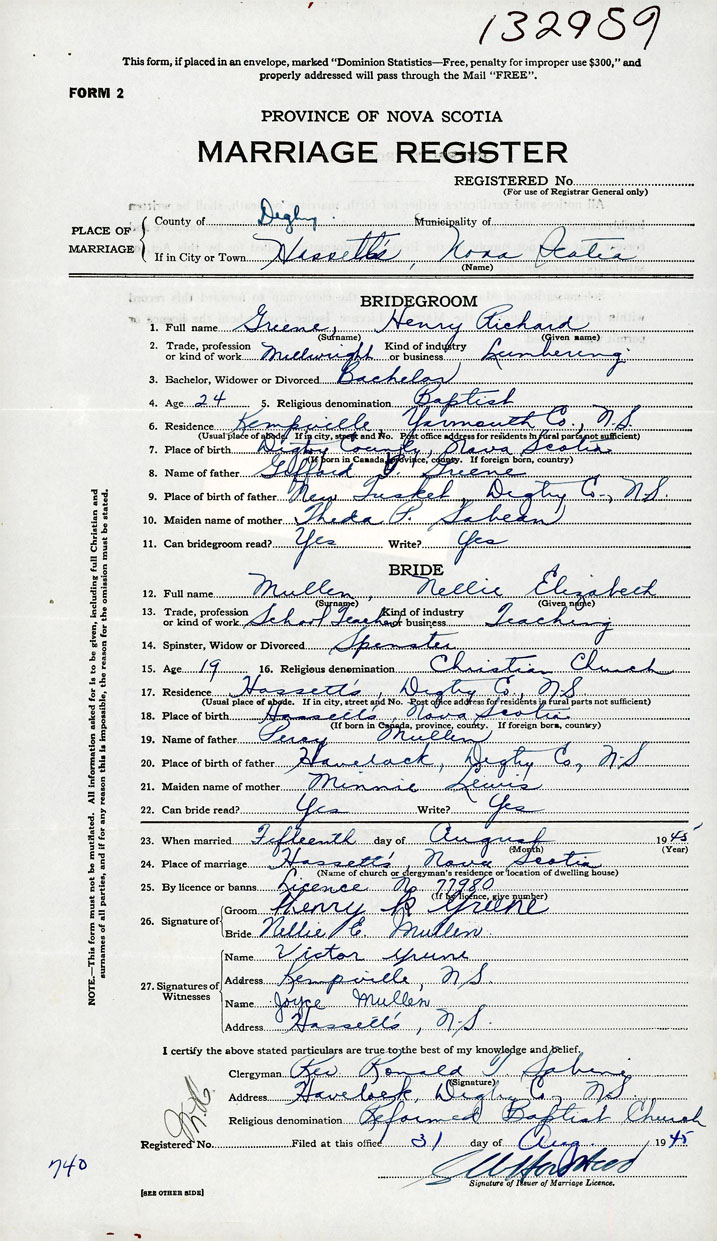 132959
This form, if placed in an envelope, marked "Dominion Statistics—Free, penalty for improper use $300," and
properly addressed will pass through the Mail "FREE".
FORM 2
PROVINCE OF NOVA SCOTIA
MARRIAGE REGISTER
REGISTERED No.
(For use of Registrar General only)
PLACE OF MARRIAGE
County of Digby Municipality of
If in City or Town Hassett's, Nova Scotia
(Name)
BRIDEGROOM
1. Full name Greene, Henry Richard
(Surname) (Given name)
2. Trade, profession or kind of work Millwright Kind of industry or business Lumbering
3. Bachelor, Widower or Divorced Bachelor
4. Age 24 5. Religious denomination Baptist
6. Residence Kempville Yarmouth Co., N.S.
(Usual place of abode. If in city, street and No. Post office address for residents in rural parts not sufficient)
7. Place of birth Digby County, Nova Scotia
(If born in Canada, province, county. If foreign born, country)
8. Name of father Gifford Greene
9. Place of birth of father New Tusket, Digby Co., N.S.
10. Maiden name of mother Theda P. Sabean
11. Can bridegroom read? Yes Write? Yes
BRIDE
12. Full name Mullen, Nellie Elizabeth
(Surname) (Given name)
13. Trade, profession or kind of work School Teacher Kind of industry or business Teaching
14. Spinster, Widow or Divorced Spinster
15. Age 19 16. Religious denomination Christian Church
17. Residence Hassett's, Digby Co., N.S.
(Usual place of abode. If in city, street and No. Post office address for residents in rural parts not sufficient)
18. Place of birth Hassett's, Nova Scotia
(If born in Canada, province, county. If foreign born, country)
19. Name of father Percy Mullen
20. Place of birth of father Havelock, Digby Co., N.S.
21. Maiden name of mother Minnie Lewis
22. Can bride read? Yes Write? Yes
23. When married Fifteenth day of August 1945
(Month) (Year)
24. Place of marriage Hassett's, Nova Scotia
(Name of church or clergyman's residence or location of dwelling house)
25. By licence or banns Licence No 77980
(If by licence, give number)
26. Signature of
Groom Henry R Greene
Bride Nellie E. Mullen
27. Signatures of Witnesses
Name Victor Greene
Address Kempville, N.S.
Name Joyce Mullen
Address Hassett's, N.S.
I certify the above stated particulars are true to the best of my knowledge and belief.
Clergyman Rev. Ronald T. Sabine
(Signature)
Address Havelock, Digby Co., N.S.
Religious denomination Reformed Baptist Church
Registered No. Filed at this office 31 day of Aug. 1945
740
Signature of Issuer of Marriage Licence.
[SEE OTHER SIDE]
NOTE.—This form must not be mutilated. All information asked for is to be given, including full Christian and
surnames of all parties, and if for any reason this is impossible, the reason for the omission must be stated.